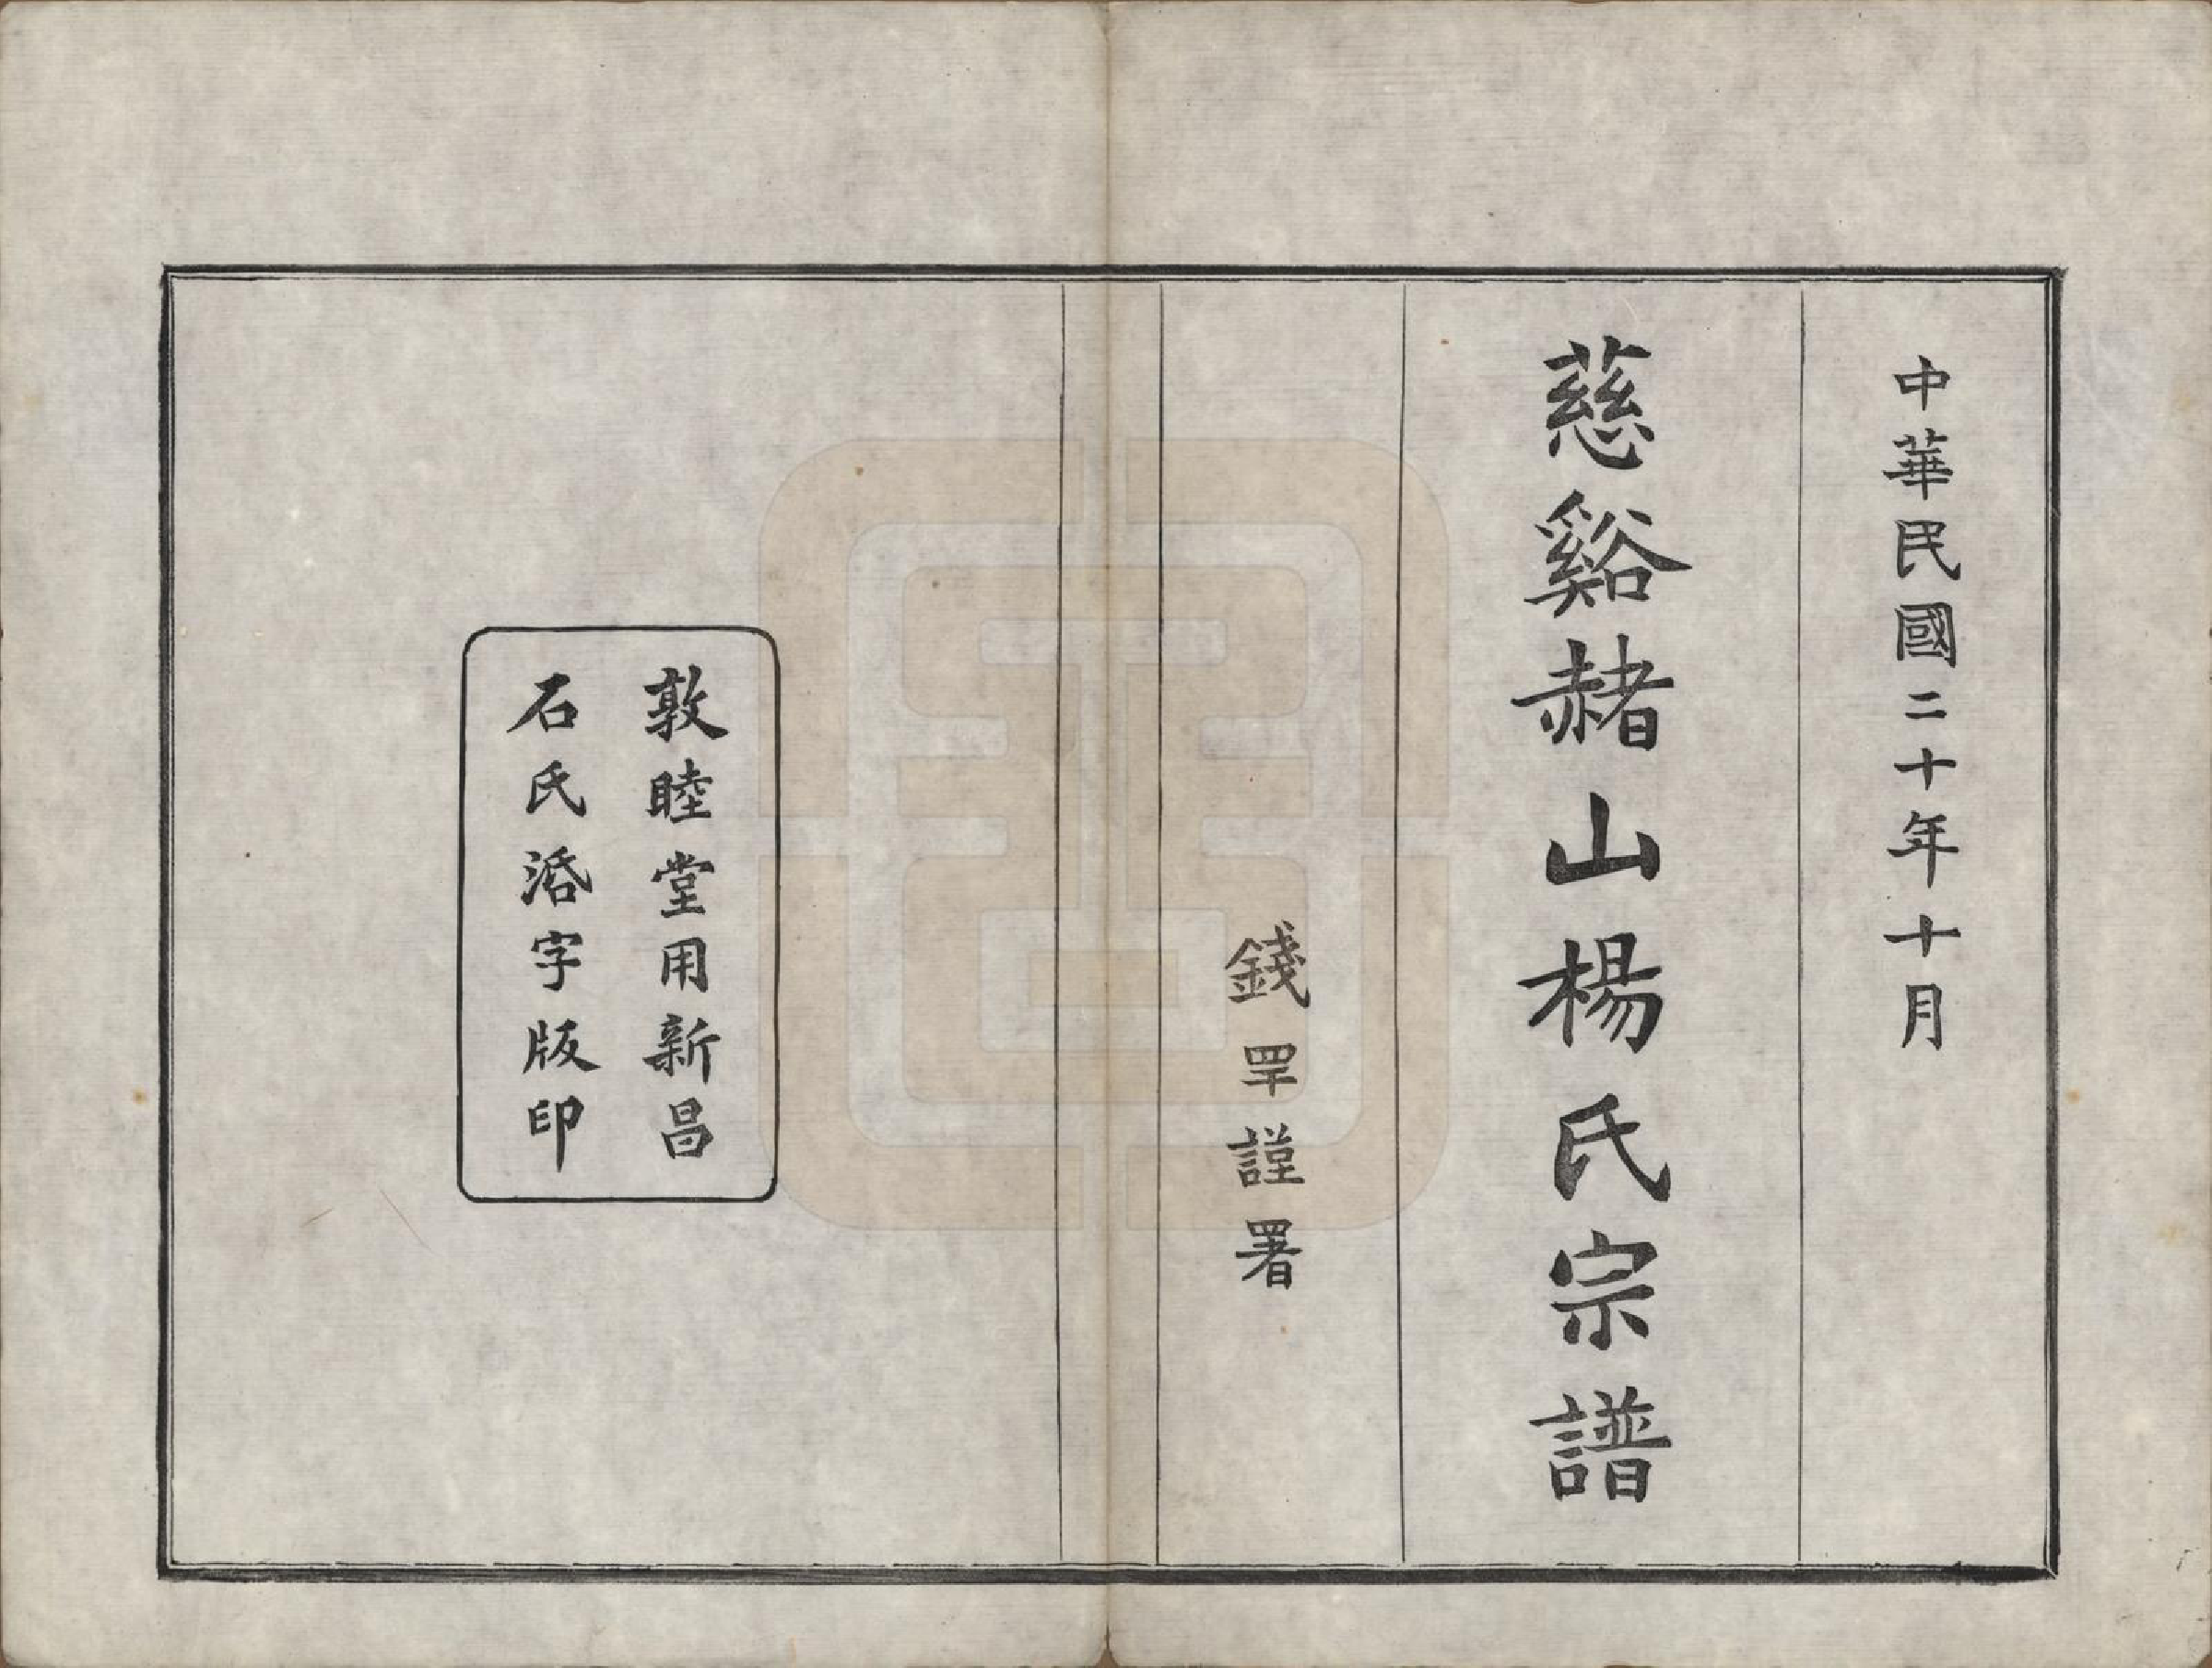 中華民國二十年十月
慈谿赭山楊氏宗譜
錢罕謹署
敦睦堂用新昌
石氏湉字版印